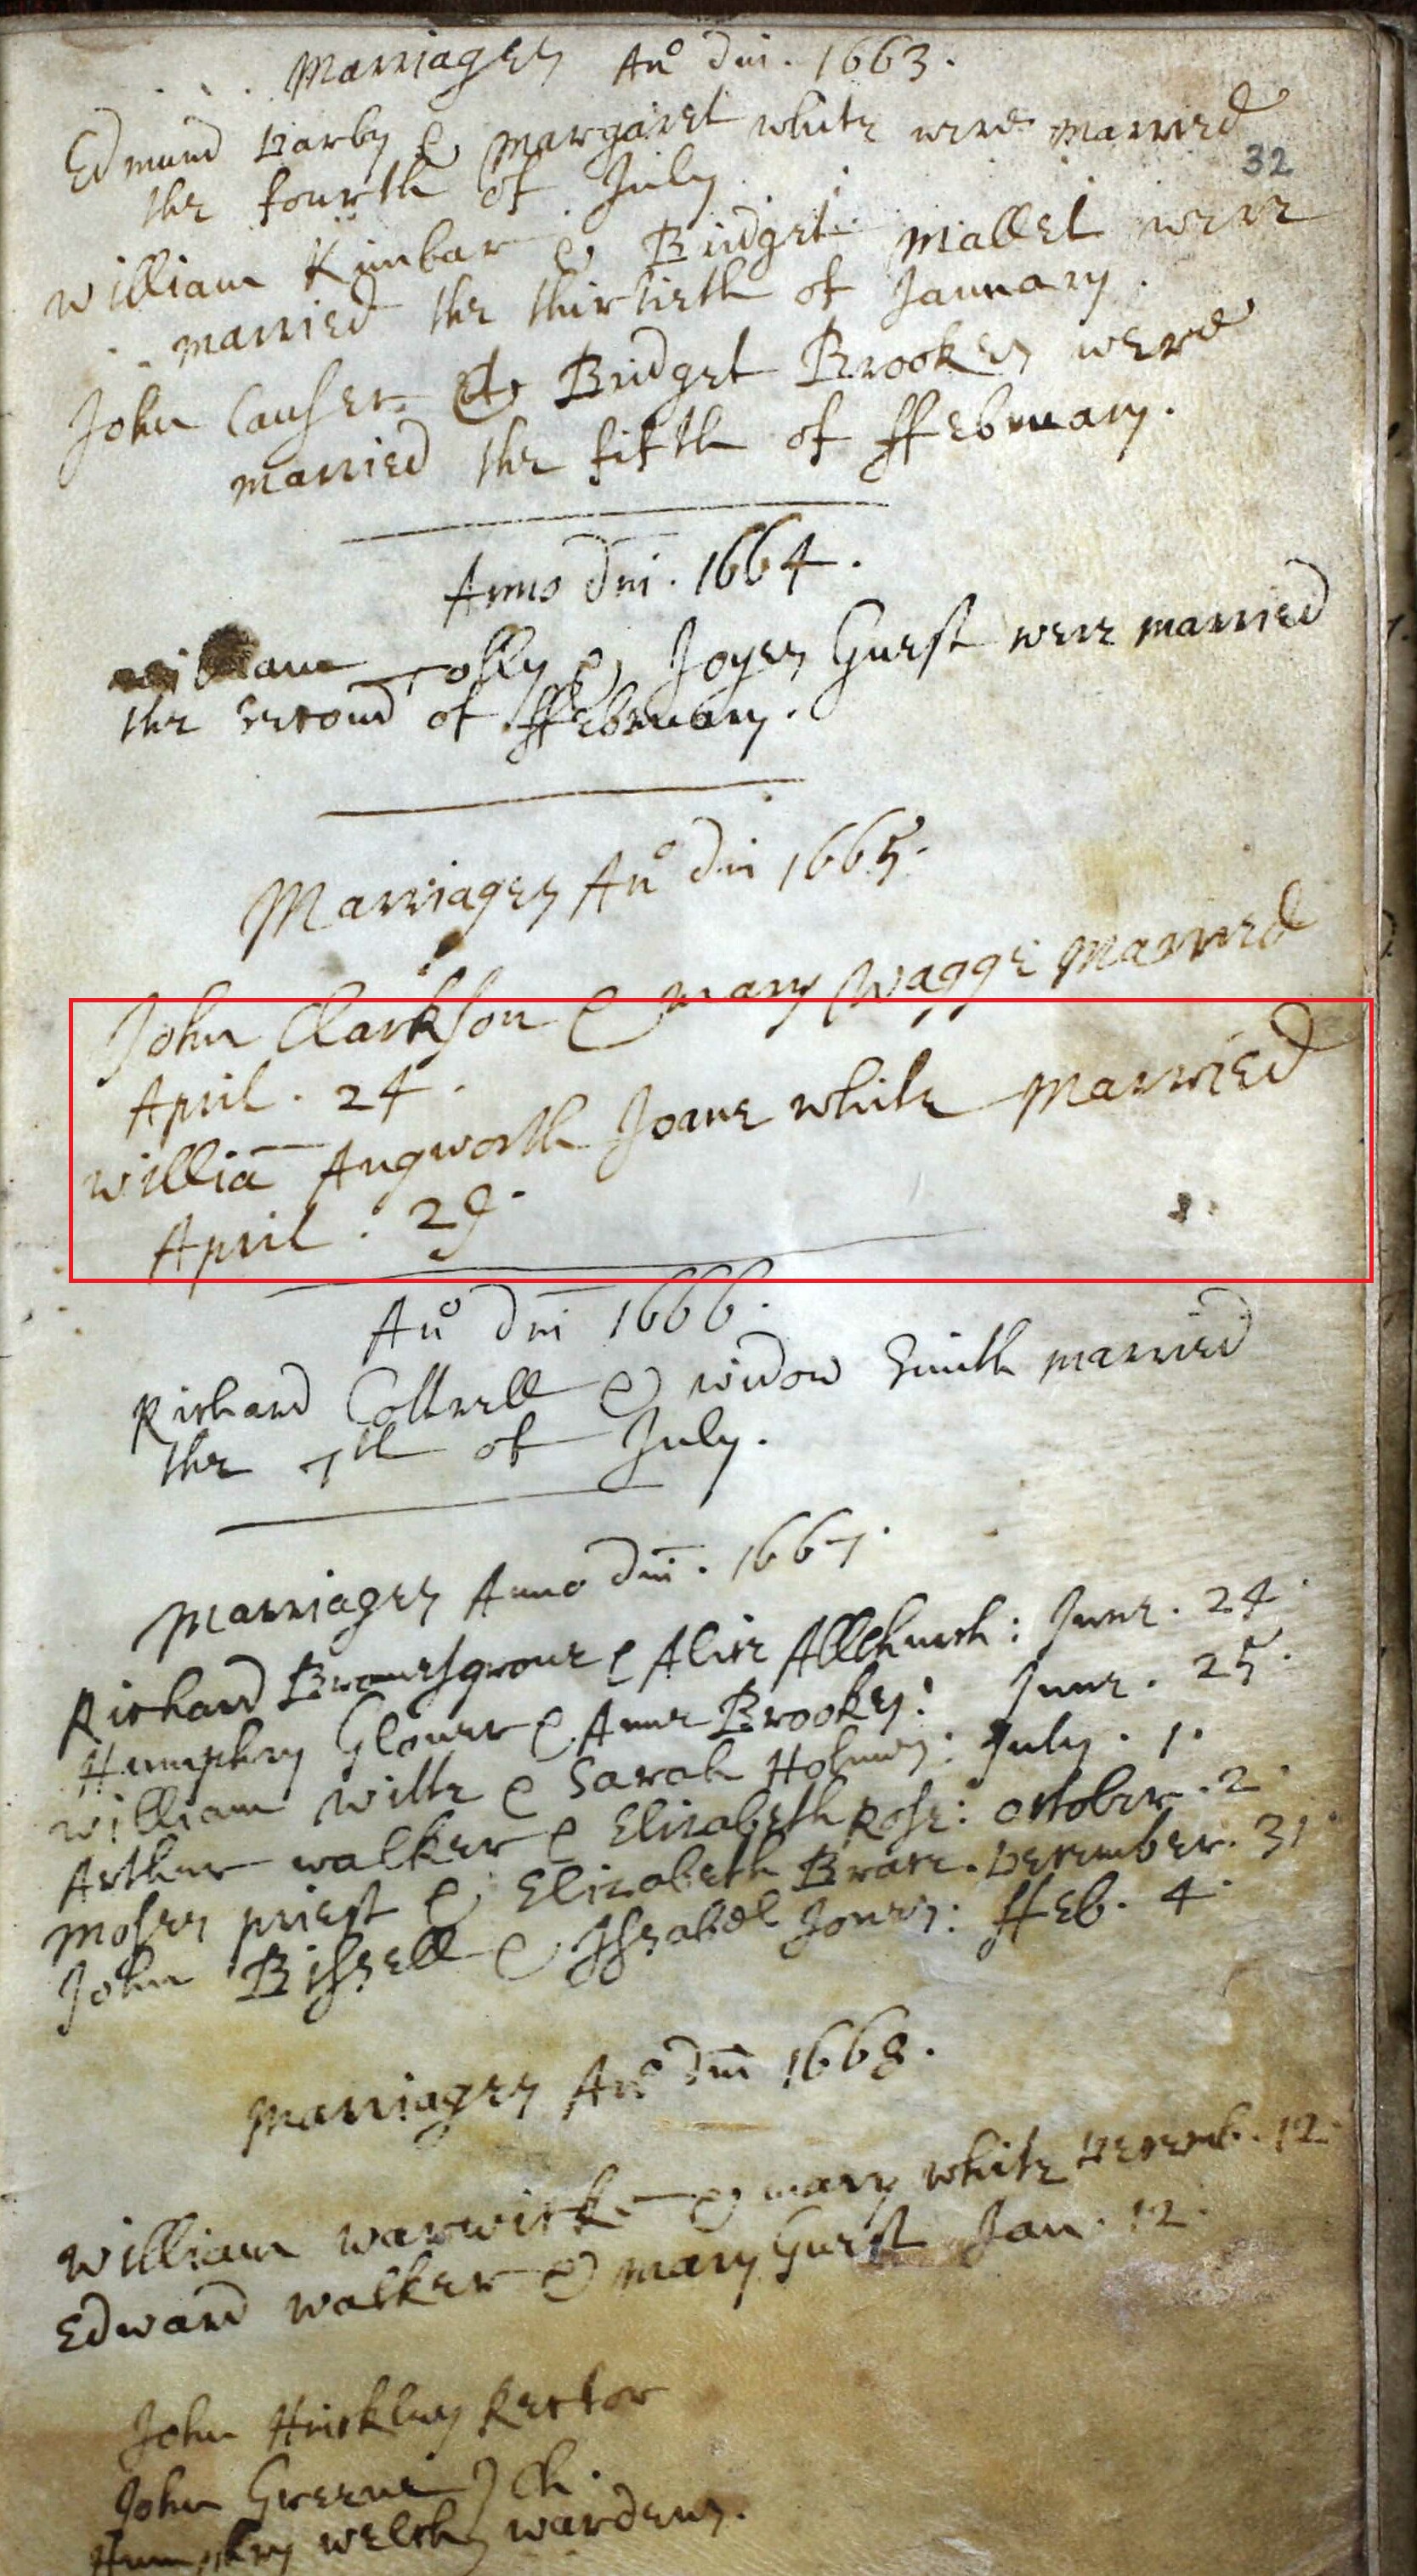 Marriages Ano dni. 1663.
Edmund Darby & Margaret white were married
32
the fourth of July
William Kimbar & Bridget Mallet were
married the thirtieth of January.
John Causer & Bridget Brookes were
married the fifth of ffebruary.
Anno dni. 1664.
william Jolly & Joyes Guest were married
the second of ffebruary.
Marriages Ano dni 1665.
John Clarkson & Mary Wagge Married
April. 24.
williā Angworth Joane white Married
April. 29.
Ano dni 1666.
Richard Cottrell & widow Smith married
the 7th of July.
Marriages Anno dni. 1667.
Richard Bromesgroue & Alice Allchurch: June. 24.
Humphry Glouer & Anne Brookes: June. 25.
William Wille & Sarah Holmes: July. 1.
Arthur walker & Elizabeth Rose: October. 2.
Moses priest & Elizabeth Brace. December. 31.
John Bissell & Issabel Jones: ffeb. 4.
Marriages Ano dni 1668.
William warwick & mary white Decemb. 12.
Edward walker & mary Guest Jan. 12.
John Hinckley Rector
John Greene } Ch.
Humphry welch } wardens.